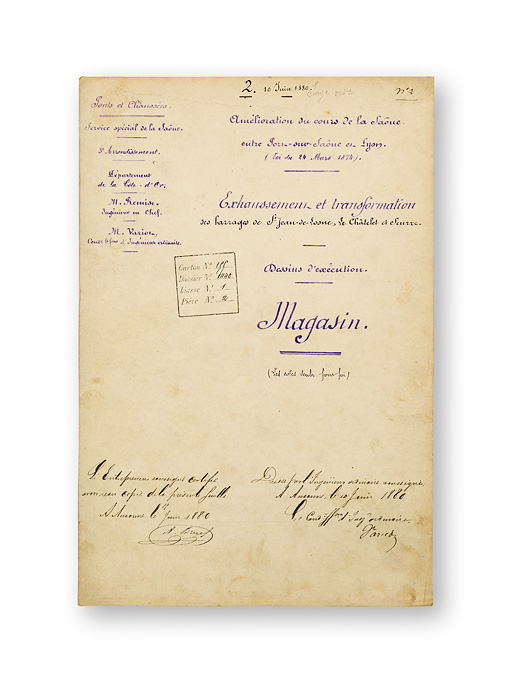 2. 10 Juin 1880.
n° 2
Ponts et Chaussées.
Service spécial de la Saône.
3e Arrondissement.
Département
de la Côte-d'Or.
M. Remise
Ingénieur en Chef.
M. Varion,
Condr ffons d'Ingénieur ordinaire.
Carton N° 155
Dossier N° 1842
Liasse N° 1
Pièce N° 2
Amélioration du cours de la Saône
entre Port-sur-Saône et Lyon.
(Loi du 24 Mars 1874)
Exhaussement et transformation
des barrages de St Jean-de-Losne, Le Châtelet et Seurre.
Dessins d'exécution.
Magasin.
(Les cotes seules font foi)
L'Entrepreneur soussigné certifie
avoir reçu copie de la présente feuille
A Auxonne le Juin 1880
Dressé par l'Ingénieur ordinaire soussigné
A Auxonne le 10 Juin 1880
Le Condr ffons d'Ingr ordinaire
Varion